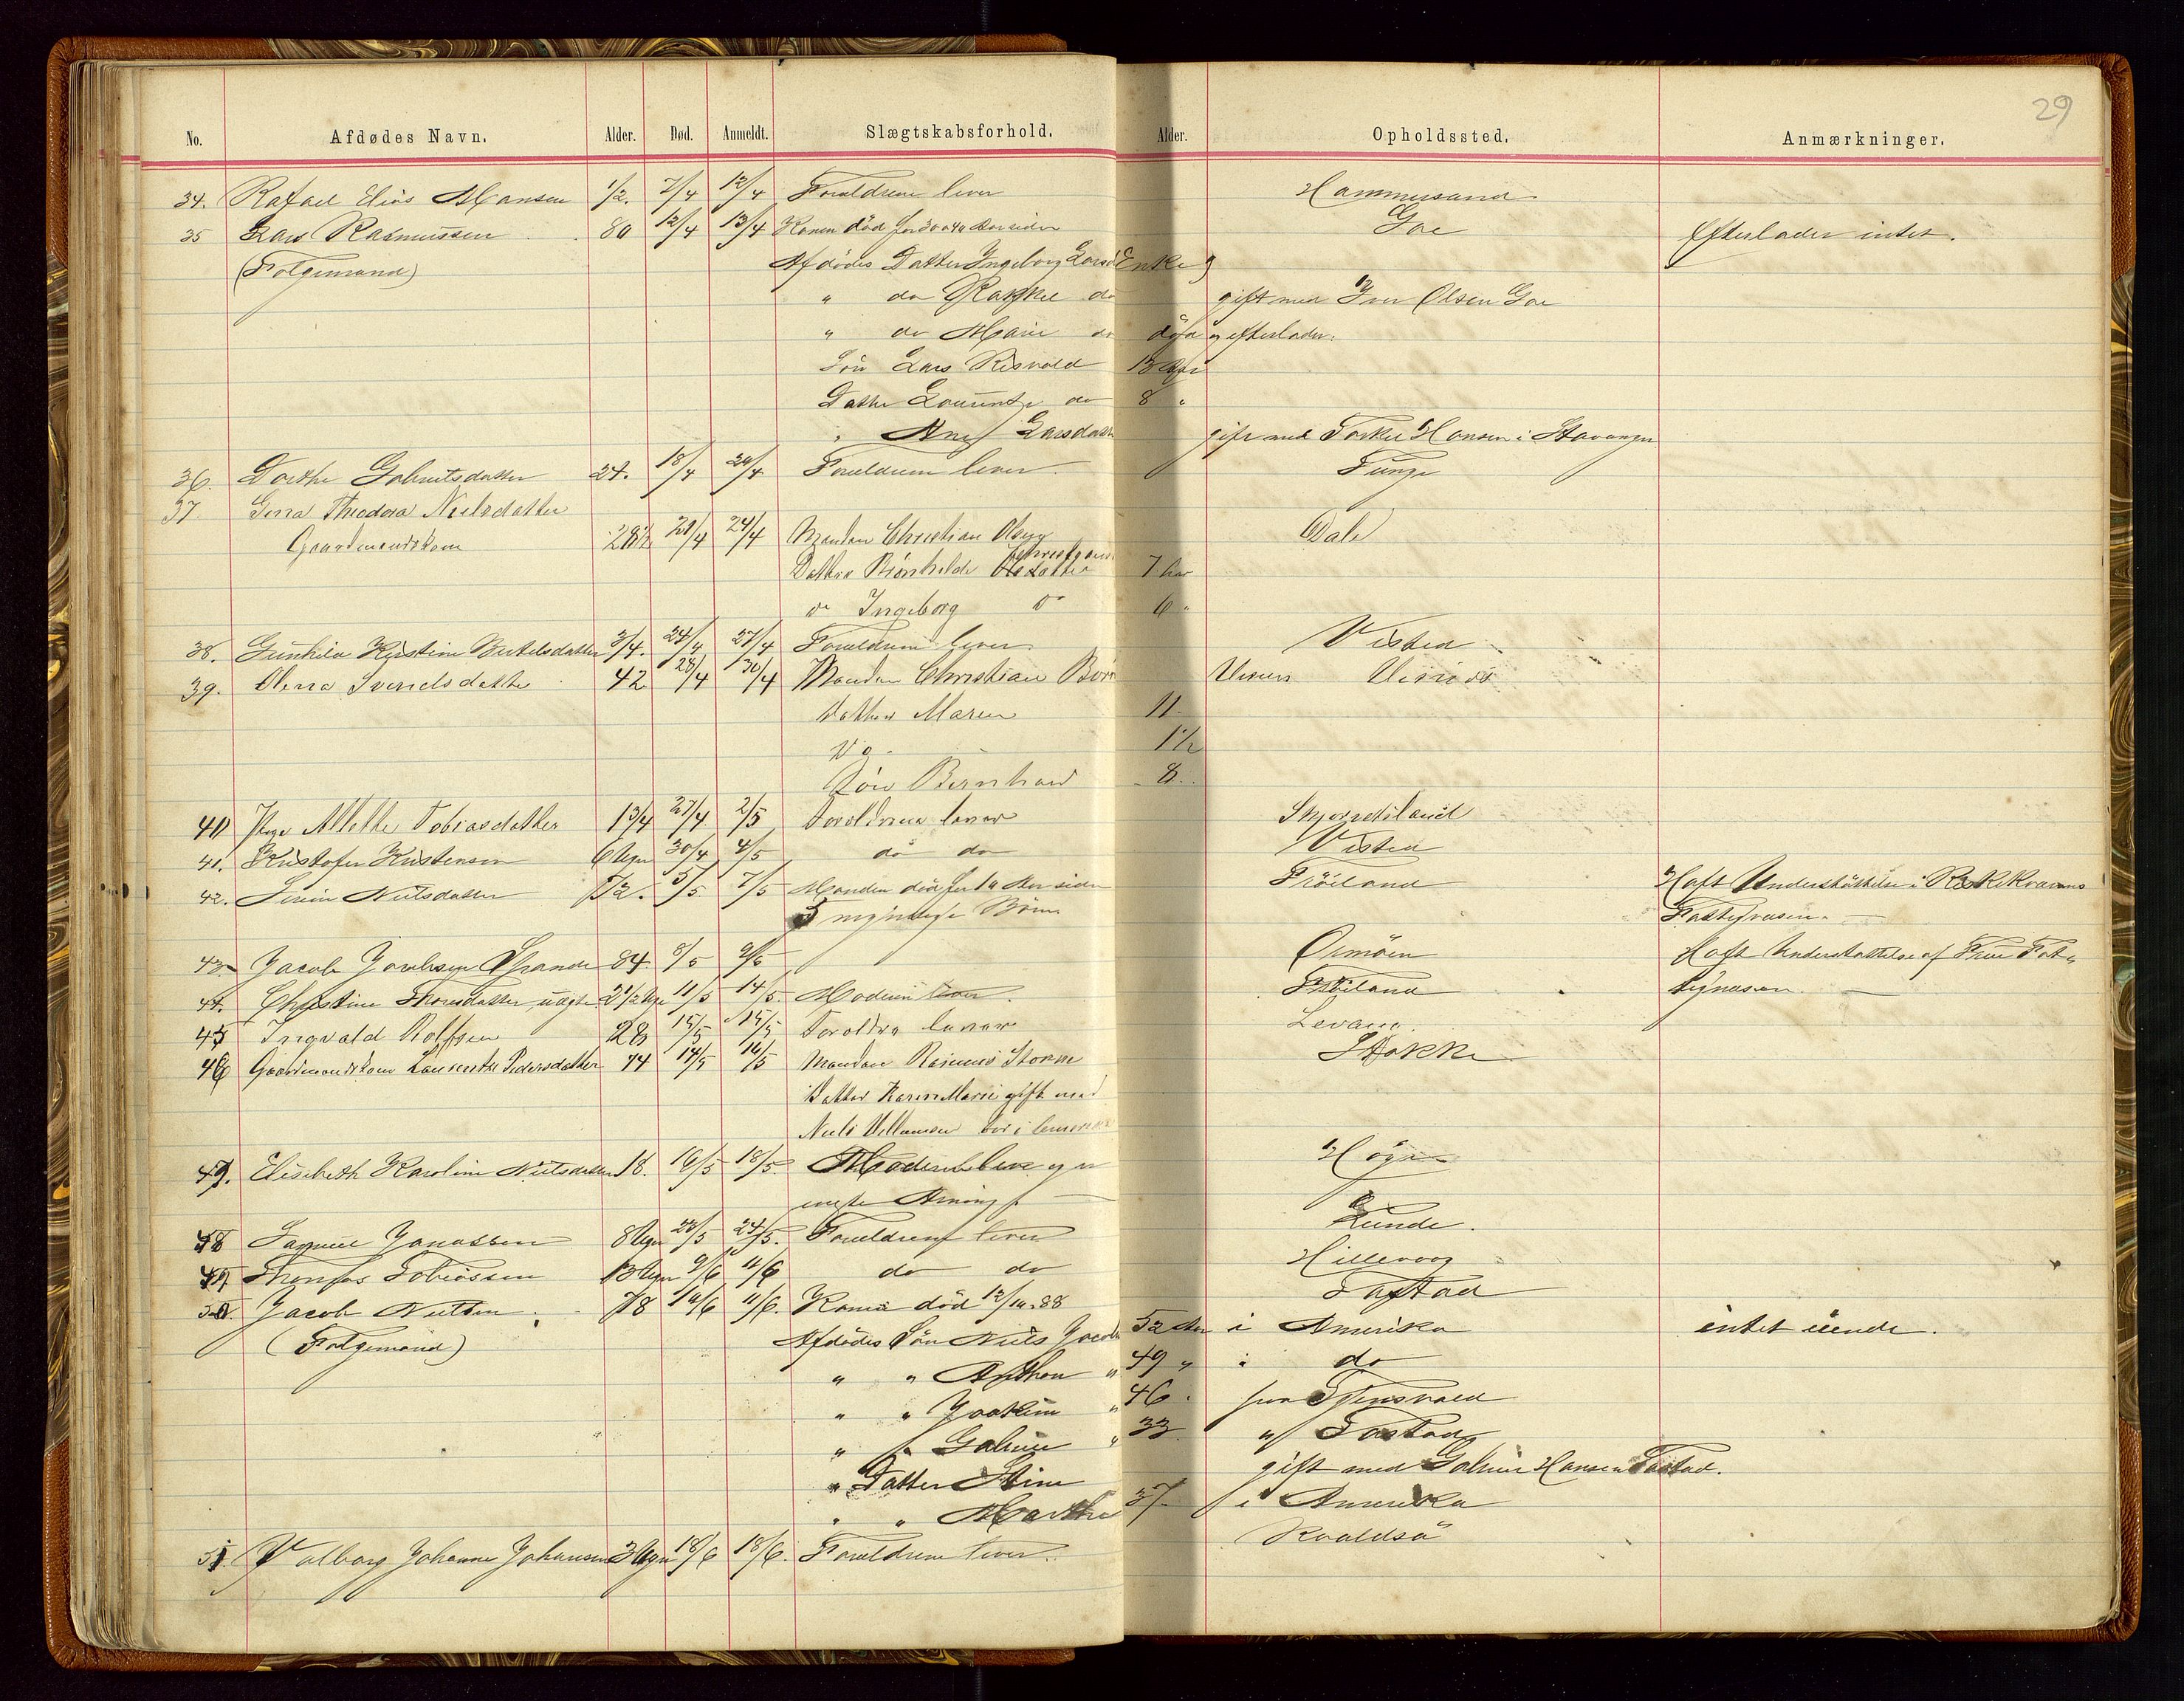 29
No. Afdødes Navn. Alder. Død. Anmeldt. Slægtskabsforhold. Alder. Opholdssted. Anmærkninger.
34. Rafael Elias Hansen 1/2. 7/4 12/4 Forældrene lever Hammersand
35 Lars Rasmussen 80 12/4 13/4 Konen død for 30 a 40 Aar siden Goe Efterlader intet.
(Folgemand) Afdødes Datter Ingeborg Larsd Enke
" do Rakkel do gift med Iver Olsen Goe
" do Marie do død og efterlader.
Søn Lars Risvold 13
Datter do 8 "
" Larsdatter gift med Torkel Hansen i Stavanger
36. Dorthe Gabrielsdatter 24. 18/4 20/4 Forældrene lever. Tunge
37 Theodora Nielsdatter
Gaardmandskone 28 1/2 21/4 24/4 Manden Christian Olsen Dale
Christians
Datter Brønhilde Olsdatter 7 Aar
do Ingeborg do 6 "
38. Gunhild Kirstine Bertelsdatter 3/4. 24/4 27/4 Forældrene lever. Visted
39. Olena Svendsdatter 42 28/4 30/4 Manden Christian
Datter Maren 11
1 1/2
Søn Bernhard 8
40 Allette Tobiasdatter 13/4 27/4 2/5 Forældrene lever
41. Kristofer Kristensen 6 Uger 30/4 4/5 do do Visted
42. Nielsdatter 72. 5/5 7/5 Manden død for 10 Aar siden Frøiland Haft Understøttelse i
5 myndige Børn Fattigvæsen.
43. Jacob Jacobsen 84 8/5 9/5 Ormøen Haft Understøttelse af Fat-
44. Christine Thoresdatter, uægte 2 1/2 11/5 14/5. Moderen lever. Frøiland tigvæsen
45 Ingvald Rolfsen 28 15/5 15/5 Forældre lever
46 Gaardmandskone Laurentze Pedersdatter 44 14/5 16/5 Manden Rasmus Storm Stokke
Datter Karen Marie gift med
Niels bor i
47. Elisebeth Karoline Nielsdatter 18. 16/5 18/5. Moderen lever og er
eneste Arving
48 Samuel Jonassen 8 Uger 23/5 24/5. Forældrene lever Lunde.
49 Thomas Tobiassen 13 Uger 9/6 11/6 do do Hillevaag
50. Jacob Nielsen 78 10/6 11/6. Kona død 12/10.88 Tastad
(Folgemand) Afdødes Søn Niels Jacob 52 Aar i Amerika intet eiende.
" " Anthon " 49 " i do
" " Joakim " 46 "
" " Gabriel " 33 " Tastad
" Datter Stine gift med Gabriel Hansen Tastad.
" " Marthe 37 i Amerika
51. Valborg Johanne Johansen 3 Uger 18/6 18/6. Forældrene lever. Kvaldsø